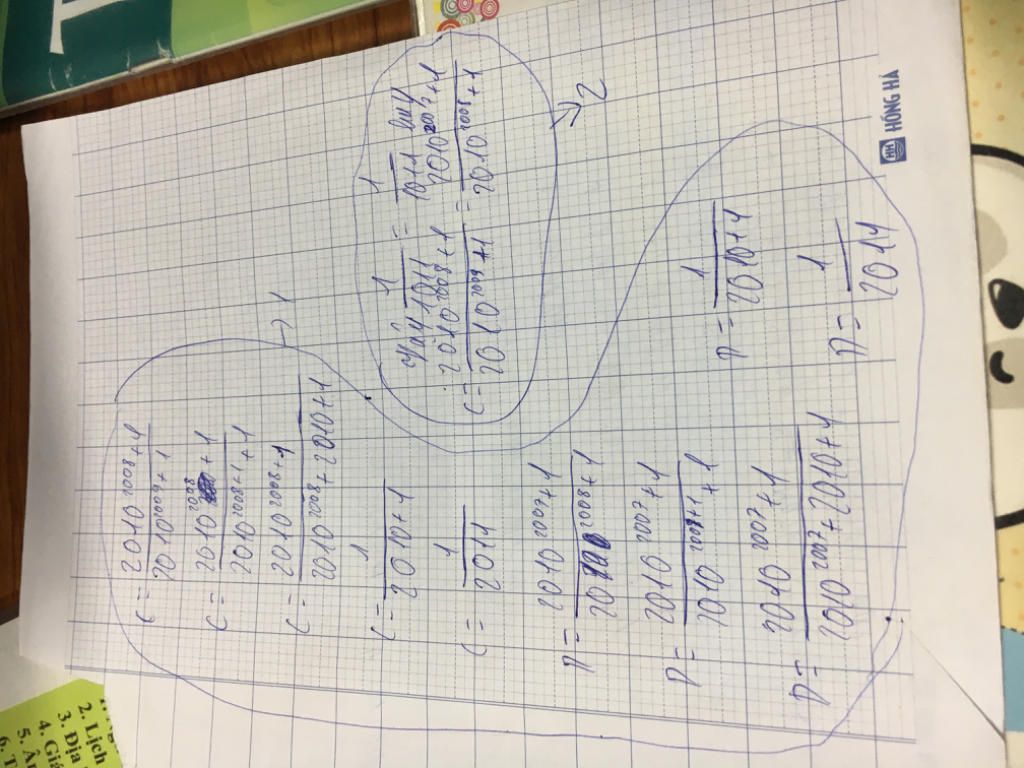 C = 2010^2008+1 / 2010^2009+1
C = 2010^2008+1 / 2010^2008+1+1
C = 2010^2008+1 / 2010^2008+2010+1
C = 1 / 2010+1
C = 1 / 2011
D = 2010^2007+1 / 2010^2008+1
D = 2010^2007+1 / 2010^2007+1+1
D = 2010^2007+1 / 2010^2007+2010+1
D = 1 / 2010+1
D = 1 / 2011
→ 1
Vậy 1 / 2011 = 1 / 2011 hay
C = 2010^2008+1 / 2010^2009+1 = 2010^2007+1 / 2010^2008+1
→ 2
HỒNG HÀ
2. Lịch
3. Địa
4. Giá
5. Âm
6. T